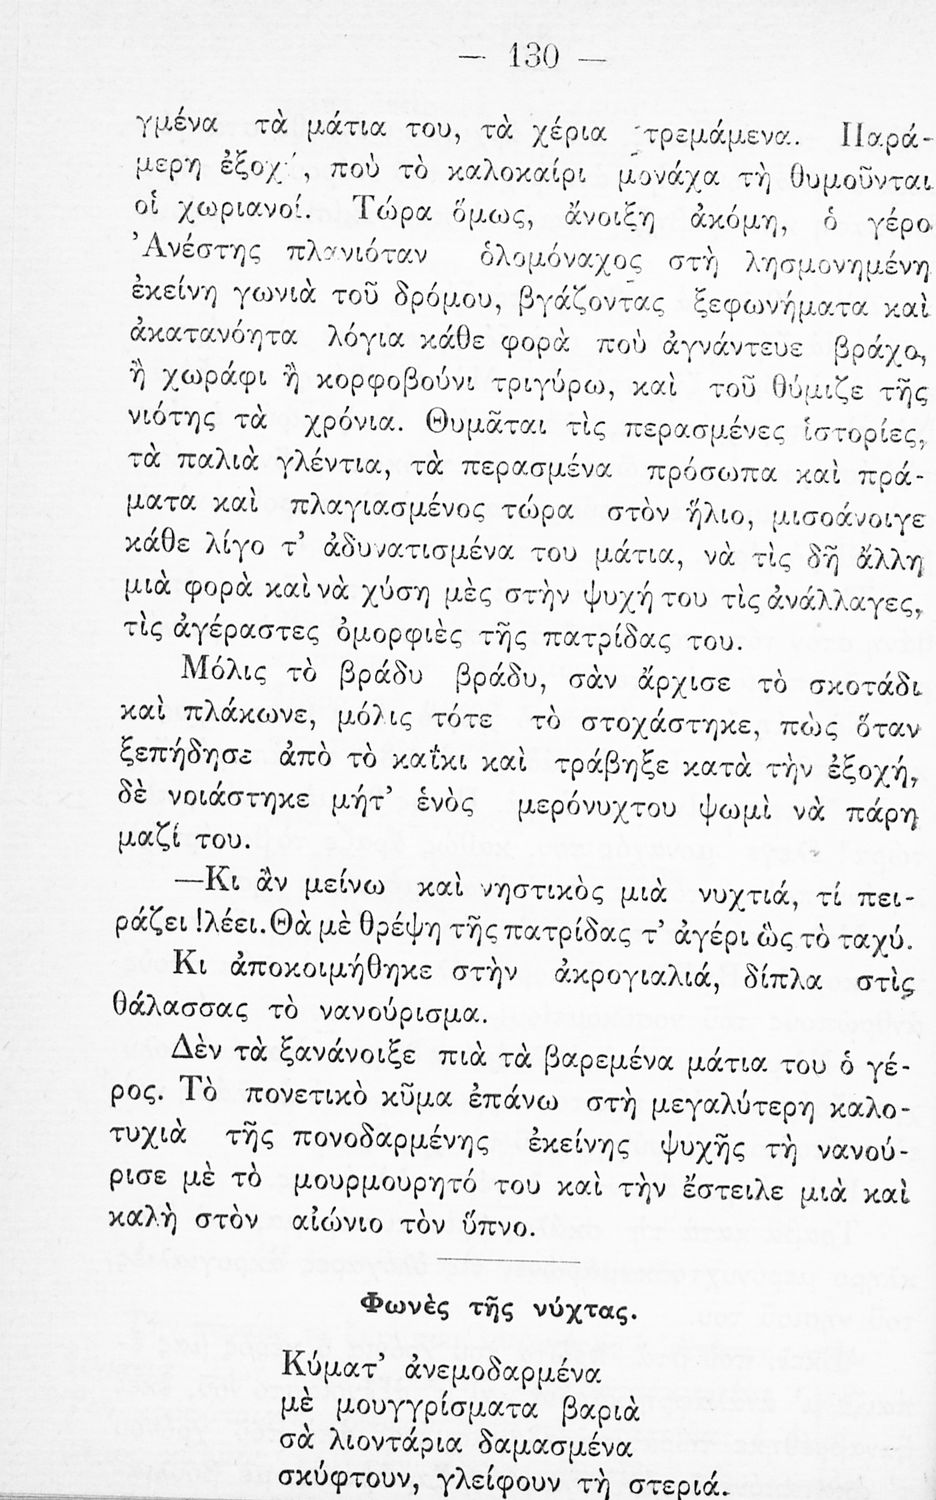 — 130 —
γμένα τὰ μάτια του, τὰ χέρια τρεμάμενα. Παρά-
μερη ἐξοχ', ποὺ τὸ καλοκαίρι μονάχα τὴ θυμοῦνται
οἱ χωριανοί. Τώρα ὅμως, ἄνοιξη ἀκόμη, ὁ γέρο
Ἀνέστης πλανιόταν ὁλομόναχος στὴ λησμονημένη
ἐκείνη γωνιὰ τοῦ δρόμου, βγάζοντας ξεφωνήματα καὶ
ἀκατανόητα λόγια κάθε φορὰ ποὺ ἀγνάντευε βράχο,
ἢ χωράφι ἢ κορφοβούνι τριγύρω, καὶ τοῦ θύμιζε τῆς
νιότης τὰ χρόνια. Θυμᾶται τὶς περασμένες ἱστορίες,
τὰ παλιὰ γλέντια, τὰ περασμένα πρόσωπα καὶ πρά-
ματα καὶ πλαγιασμένος τώρα στὸν ἥλιο, μισοάνοιγε
κάθε λίγο τ' ἀδυνατισμένα του μάτια, νὰ τὶς δῆ ἄλλη
μιὰ φορὰ καὶ νὰ χύση μὲς στὴν ψυχή του τὶς ἀνάλλαγες,
τὶς ἀγέραστες ὀμορφιὲς τῆς πατρίδας του.
Μόλις τὸ βράδυ βράδυ, σὰν ἄρχισε τὸ σκοτάδι
καὶ πλάκωνε, μόλις τότε τὸ στοχάστηκε, πὼς ὅταν
ξεπήδησε ἀπὸ τὸ καΐκι καὶ τράβηξε κατὰ τὴν ἐξοχή,
δὲ νοιάστηκε μήτ' ἑνὸς μερόνυχτου ψωμὶ νὰ πάρη
μαζί του.
—Κι ἂν μείνω καὶ νηστικὸς μιὰ νυχτιά, τί πει-
ράζει! λέει. Θὰ μὲ θρέψη τῆς πατρίδας τ' ἀγέρι ὣς τὸ ταχύ.
Κι ἀποκοιμήθηκε στὴν ἀκρογιαλιά, δίπλα στὶς
θάλασσας τὸ νανούρισμα.
Δὲν τὰ ξανάνοιξε πιὰ τὰ βαρεμένα μάτια του ὁ γέ-
ρος. Τὸ πονετικὸ κῦμα ἐπάνω στὴ μεγαλύτερη καλο-
τυχιὰ τῆς πονοδαρμένης ἐκείνης ψυχῆς τὴ νανού-
ρισε μὲ τὸ μουρμουρητό του καὶ τὴν ἔστειλε μιὰ καὶ
καλὴ στὸν αἰώνιο τὸν ὕπνο.
Φωνὲς τῆς νύχτας.
Κύματ' ἀνεμοδαρμένα
μὲ μουγγρίσματα βαριὰ
σὰ λιοντάρια δαμασμένα
σκύφτουν, γλείφουν τὴ στεριά.